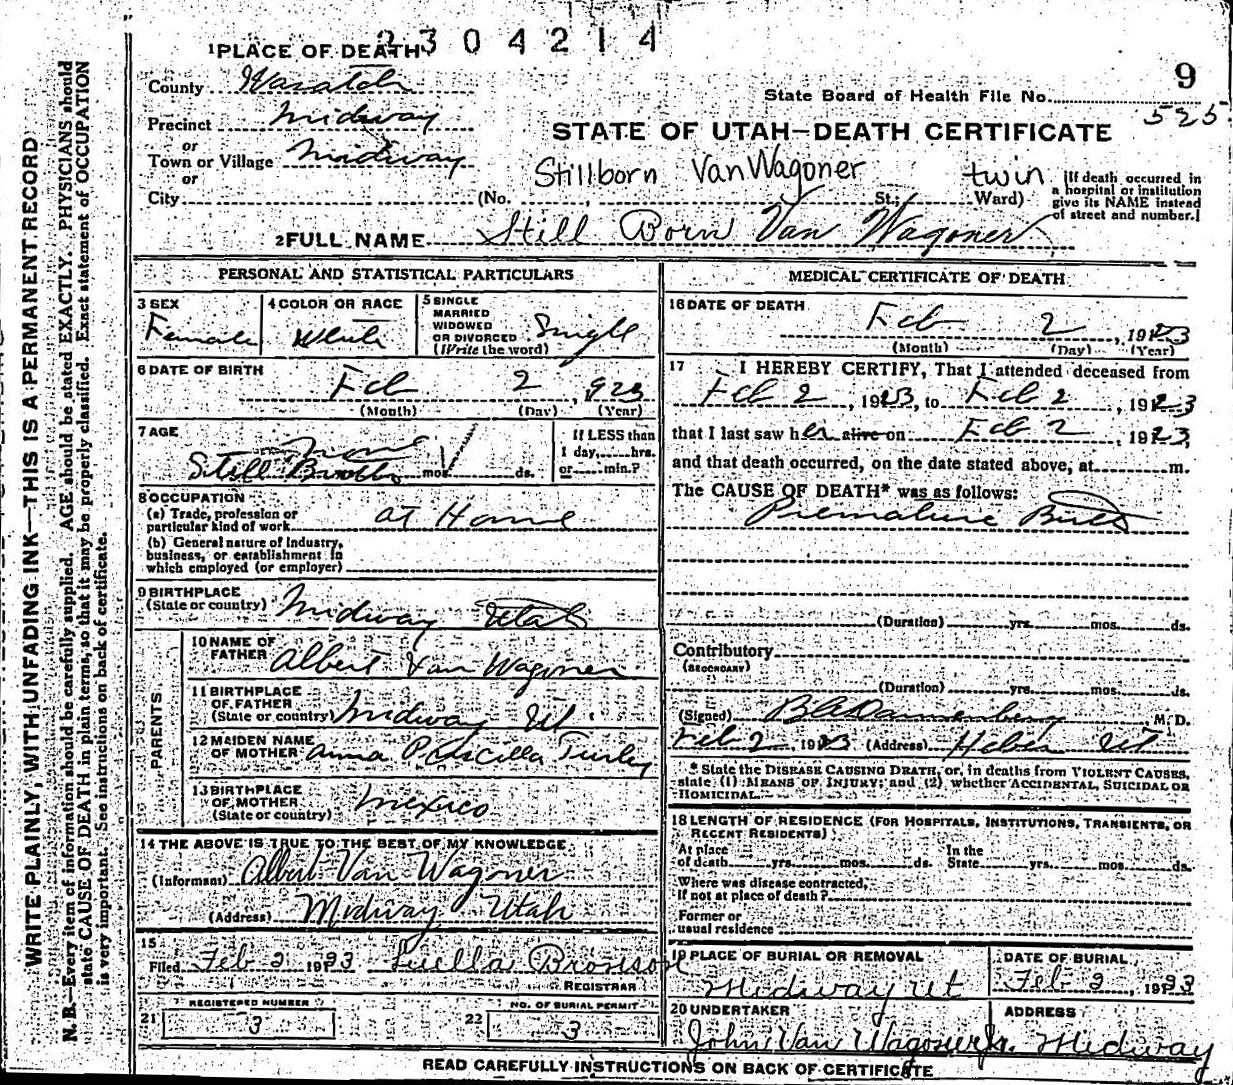 2304214
1 PLACE OF DEATH
9
County Wasatch
State Board of Health File No.
525
Precinct Midway
or
STATE OF UTAH—DEATH CERTIFICATE
Town or Village Midway
or
Stillborn VanWagoner twin
City (No. St.; Ward)
[If death occurred in
a hospital or institution
give its NAME instead
of street and number.]
2 FULL NAME Still Born Van Wagoner
PERSONAL AND STATISTICAL PARTICULARS
3 SEX Female
4 COLOR OR RACE White
5 SINGLE
MARRIED
WIDOWED
OR DIVORCED
(Write the word) Single
6 DATE OF BIRTH
Feb 2, 923
(Month) (Day) (Year)
7 AGE
Still mos. ds.
If LESS than
1 day, hrs.
or min.?
8 OCCUPATION
(a) Trade, profession or
particular kind of work at Home
(b) General nature of Industry,
business, or establishment in
which employed (or employer)
9 BIRTHPLACE
(State or country) Midway Utah
PARENTS
10 NAME OF
FATHER Albert Van Wagoner
11 BIRTHPLACE
OF FATHER
(State or country) Midway Ut.
12 MAIDEN NAME
OF MOTHER Anna Priscilla Turley
13 BIRTHPLACE
OF MOTHER
(State or country) Mexico
14 THE ABOVE IS TRUE TO THE BEST OF MY KNOWLEDGE
(Informant) Albert Van Wagoner
(Address) Midway Utah
15
Filed Feb 2 1923 Luella Bronson
REGISTRAR
21 REGISTERED NUMBER 3
22 NO. OF BURIAL PERMIT 3
MEDICAL CERTIFICATE OF DEATH
16 DATE OF DEATH
Feb 2, 1923
(Month) (Day) (Year)
17 I HEREBY CERTIFY, That I attended deceased from
Feb 2, 1923, to Feb 2, 1923
that I last saw her alive on Feb 2, 1923,
and that death occurred, on the date stated above, at m.
The CAUSE OF DEATH* was as follows:
Premature Birth
(Duration) yrs. mos. ds.
Contributory
(SECONDARY)
(Duration) yrs. mos. ds.
(Signed) B A Dannenberg, M. D.
Feb 2, 1923 (Address) Heber Ut
* State the DISEASE CAUSING DEATH, or, in deaths from VIOLENT CAUSES,
state (1) MEANS OF INJURY; and (2) whether ACCIDENTAL, SUICIDAL OR
HOMICIDAL.
18 LENGTH OF RESIDENCE (FOR HOSPITALS, INSTITUTIONS, TRANSIENTS, OR
RECENT RESIDENTS)
At place
of death yrs. mos. ds.
In the
State yrs. mos. ds.
Where was disease contracted,
If not at place of death?
Former or
usual residence
19 PLACE OF BURIAL OR REMOVAL
Midway Ut
DATE OF BURIAL
Feb 2, 1923
20 UNDERTAKER
John Van Wagoner Jr.
ADDRESS
Midway
READ CAREFULLY INSTRUCTIONS ON BACK OF CERTIFICATE
WRITE PLAINLY, WITH UNFADING INK—THIS IS A PERMANENT RECORD
N. B.—Every item of information should be carefully supplied. AGE should be stated EXACTLY. PHYSICIANS should
state CAUSE OF DEATH in plain terms, so that it may be properly classified. Exact statement of OCCUPATION
is very important. See instructions on back of certificate.